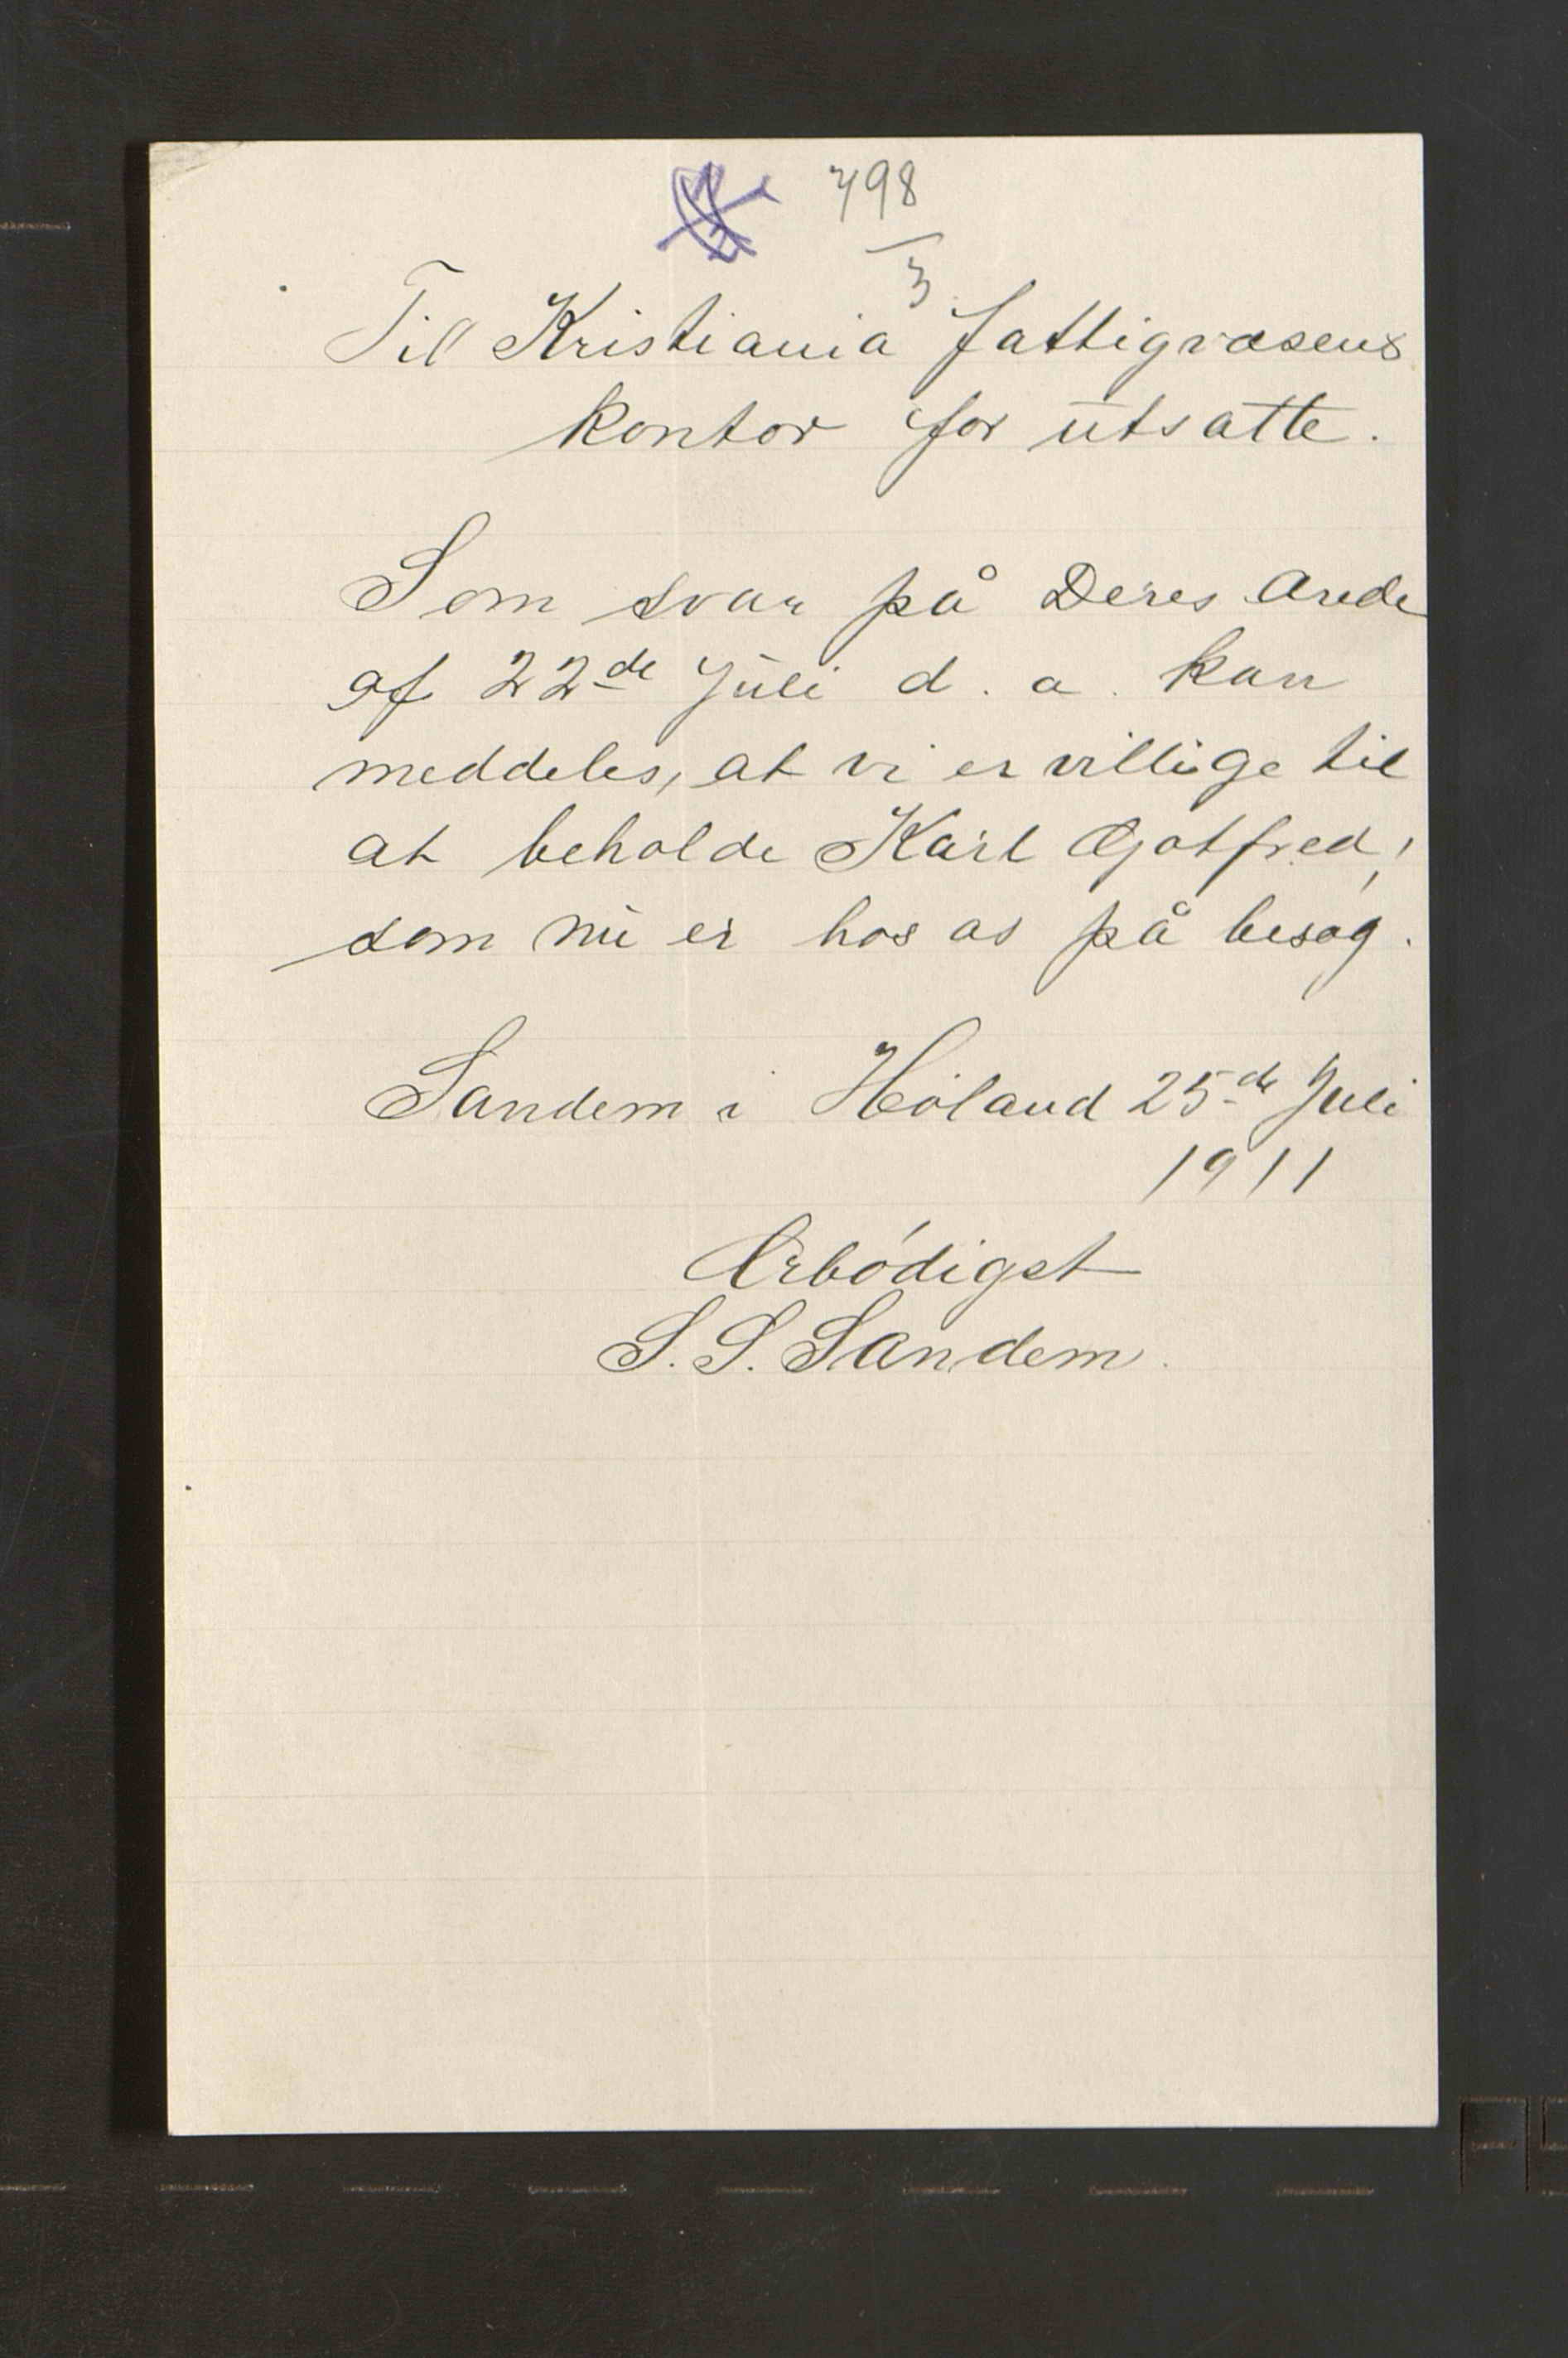 798
3
Til Kristiania fattigvæsens
kontor for utsatte.
Som svar på Deres ærede
af 22de Juli d. a. kan
meddeles, at vi er villige til
at beholde Karl Gotfred,
som nu er hos os på besøg.
Sandem i Høland 25de Juli
1911
Ærbødigst
S. S. Sandem.